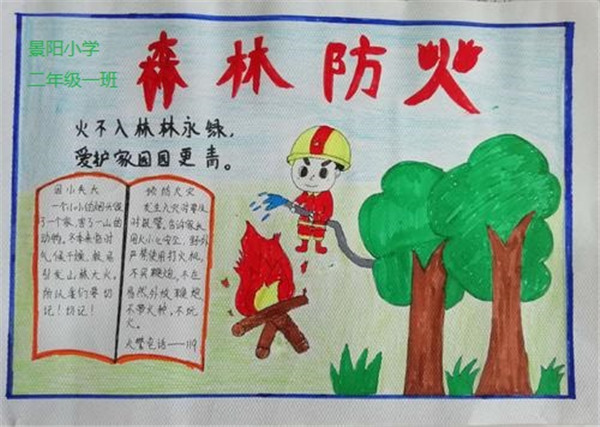 景阳小学
二年级一班
森林防火
火不入林林永绿,
爱护家园园更青。
因小失大
一个小小的烟头毁
了一个家,害了一山的
动物。冬季来临时
气候干燥,极易
引发山林大火。
所以我们要切
记!切记!
预防火灾
发生火灾时要及
时报警。告诉家长
用火小心安全,野外
严禁使用打火机,
不燃鞭炮,不在
外放鞭炮,
不带火种,不玩
火。
火警电话——119